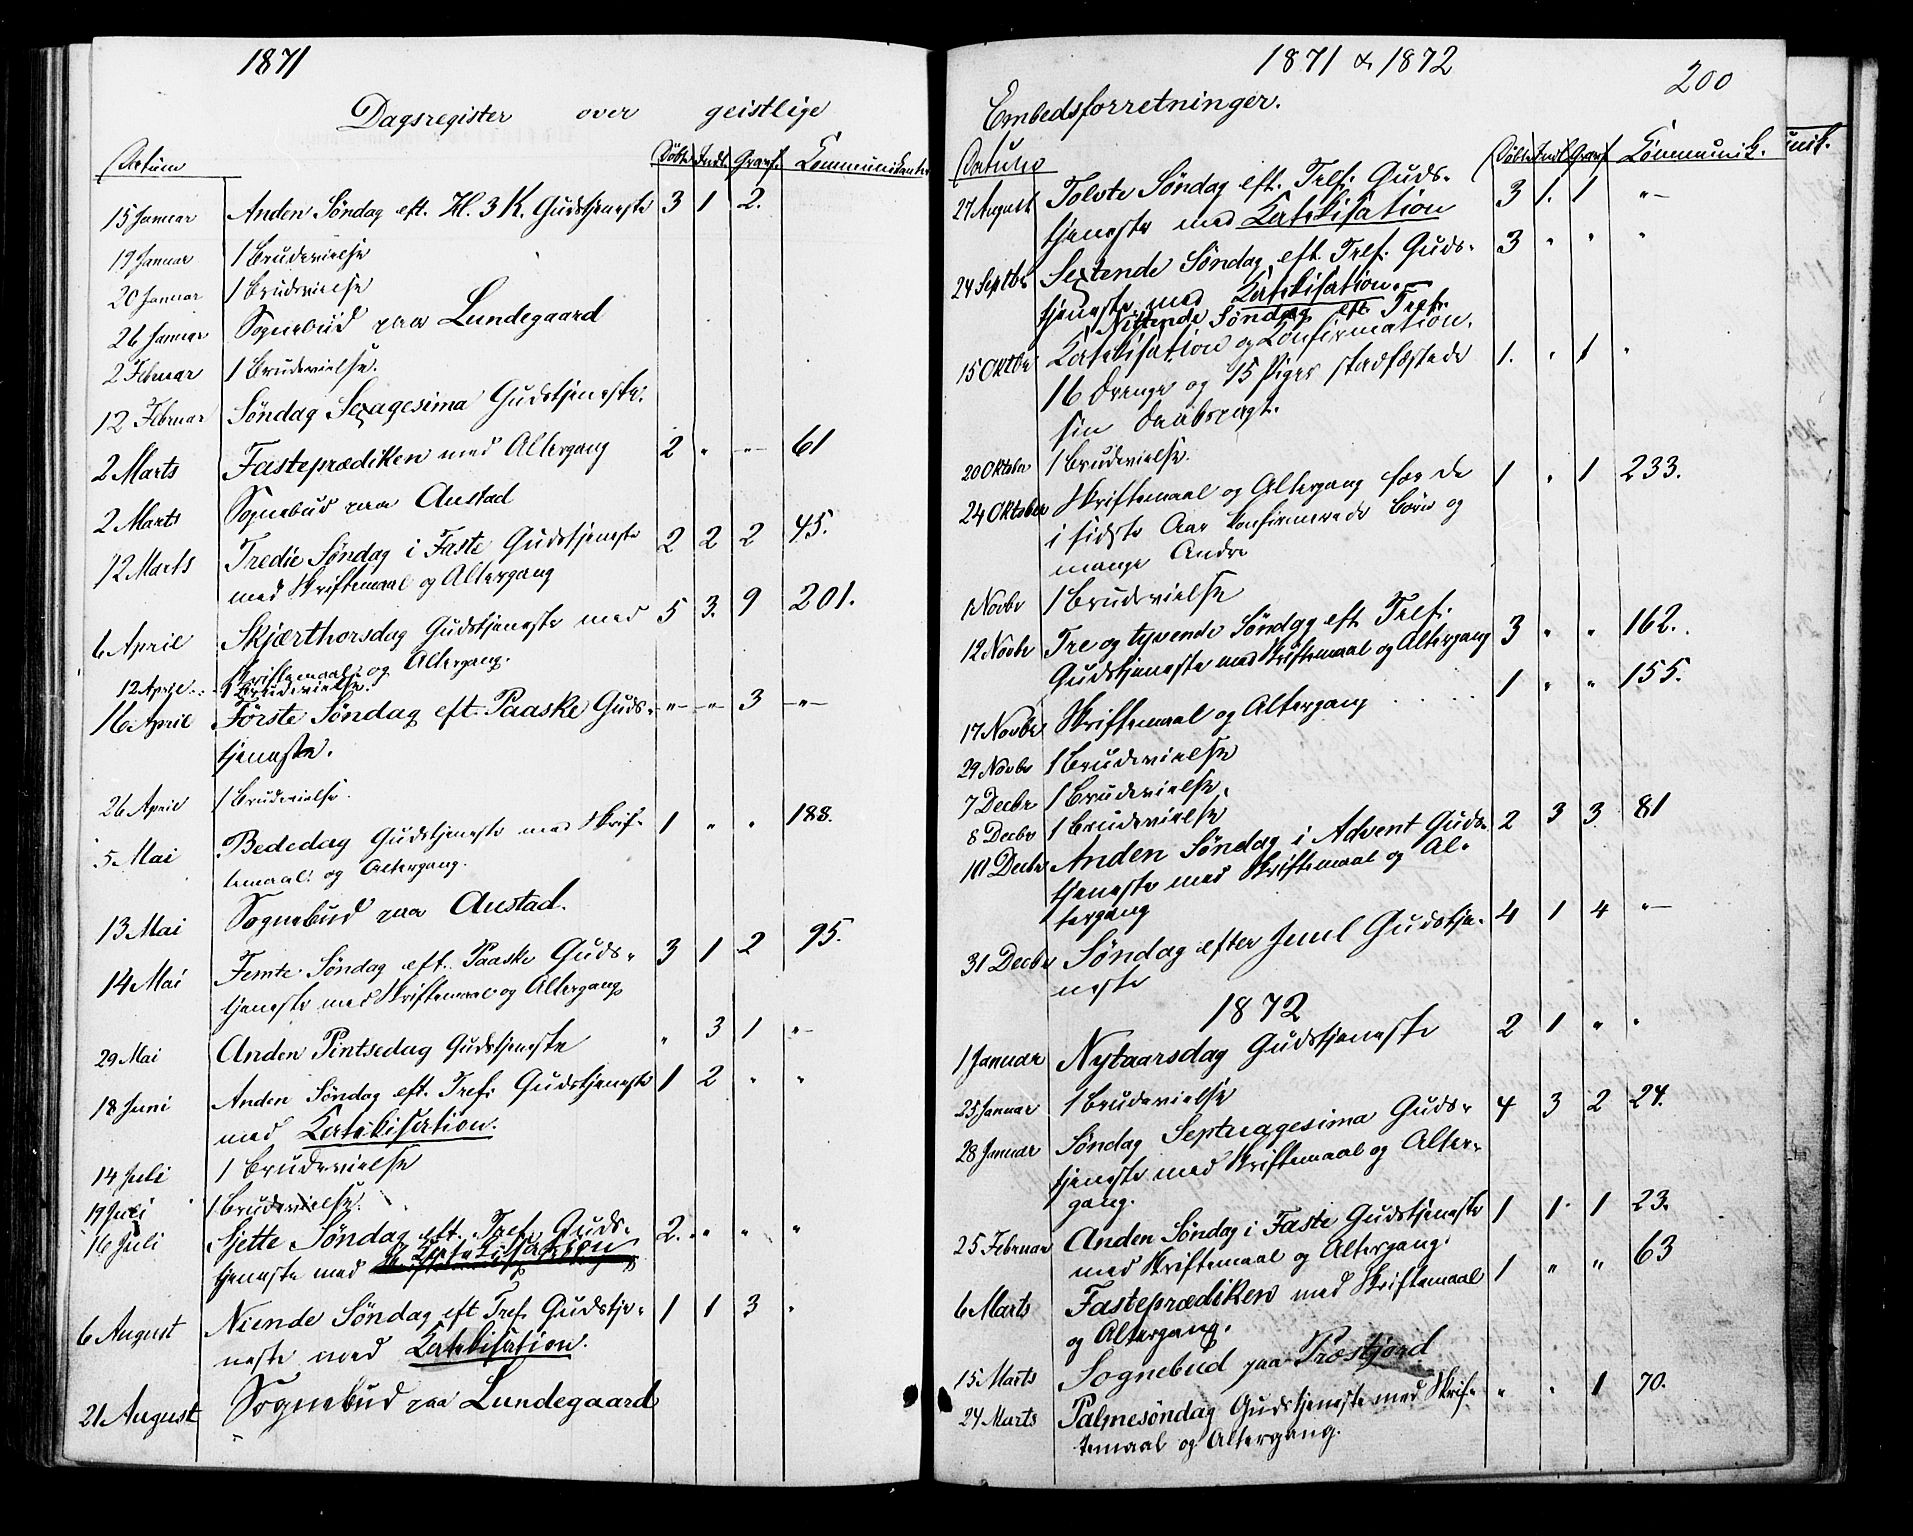 1871
Dagsregister over geistlige
Datum Døbte Indl. Gravf. Kommunikanter
15 Januar Anden Søndag eft. H. 3 K. Gudstjeneste 3 1 2.
19 Januar 1 Brudevielse
20 Januar 1 Brudevielse
26 Januar Sognebud paa Lundegaard
2 Februar 1 Brudevielse.
12 Februar Søndag Sexagesima Gudstjeneste.
2 Marts Fasteprædiken med Altergang 2 " " 61
2 Marts Sognebud paa Austad
12 Marts Tredie Søndag i Faste Gudstjeneste 2 2 2 45.
med Skriftemaal og Altergang
6 April Skjærthorsdag Gudstjeneste med 5 3. 9 201.
Skriftemaal og Altergang.
12 April 1 Brudevielse.
16 April Første Søndag eft. Paaske Guds- " " 3 "
tjeneste.
26 April 1 Brudevielse.
5 Mai Bededag Gudstjeneste med Skrif- 1 " " 188.
temaal og Altergang.
13 Mai Sognebud paa Austad.
14 Mai Femte Søndag eft. Paaske Guds- 3 1 2 95.
tjeneste med Skriftemaal og Altergang
29 Mai Anden Pintsedag Gudstjeneste " 3 1 "
18 Juni Anden Søndag eft. Tref. Gudstjeneste 1 2 " "
med Katekisation.
14 Juli 1 Brudevielse
19 Juli 1 Brudevielse.
16 Juli Sjette Søndag eft. Tref. Guds- 2. " " "
tjeneste med Katekisation
6 August Niende Søndag eft Tref. Gudstje- 1 1 3 "
neste med Katekisation.
21 August Sognebud paa Lundegaard
1871 & 1872
200
Embedsforretninger.
Datum Døbte Indl Gravf Kommunik.
27 August Tolvte Søndag eft. Tref. Guds- 3 1. 1 "
tjeneste med Katekisation
24 Septbr Sextende Søndag eft. Tref. Guds- 3 " " "
tjeneste med Katekisation.
Nittende Søndag eft Tref.
15 Oktbr Katekisation og Konfirmation. 1. " 1 "
16 Drenge og 15 Piger stadfæstede
sin Daabspagt.
20 Oktober 1 Brudevielse.
24 Oktober Skriftemaal og Altergang for de 1 " 1 233.
i sidste Aar konfirmerede Børn og
mange Andre
1 Novbr 1 Brudevielse
12 Novbr Tre og tyvende Søndag eft Tref. 3 " " 162.
Gudstjeneste med Skriftemaal og Altergang
17 Novbr Skriftemaal og Altergang 1 " " 155.
29 Novbr 1 Brudevielse
7 Decbr 1 Brudevielse.
8 Decbr 1 Brudevielse
10 Decbr Anden Søndag i Advent Guds- 2 3 3. 81
tjeneste med Skriftemaal og Al-
tergang
31 Decbr Søndag efter Juul Gudstje- 4 1 4 "
neste
1872
1 Januar Nytaarsdag Gudstjeneste 2 1 " "
25 Januar 1 Brudevielse
28 Januar Søndag Septuagesima Guds- 4 3 2 24.
tjeneste med Skriftemaal og Alter-
gang.
25 Februar Anden Søndag i Faste Gudstjeneste 1 1. 1 23.
med Skriftemaal og Altergang.
6 Marts Fasteprædiken med Skriftemaal 1 " " 63
og Altergang.
15 Marts Sognebud paa
24 Marts Palmesøndag Gudstjeneste med Skrif- " " 1 70.
temaal og Altergang.